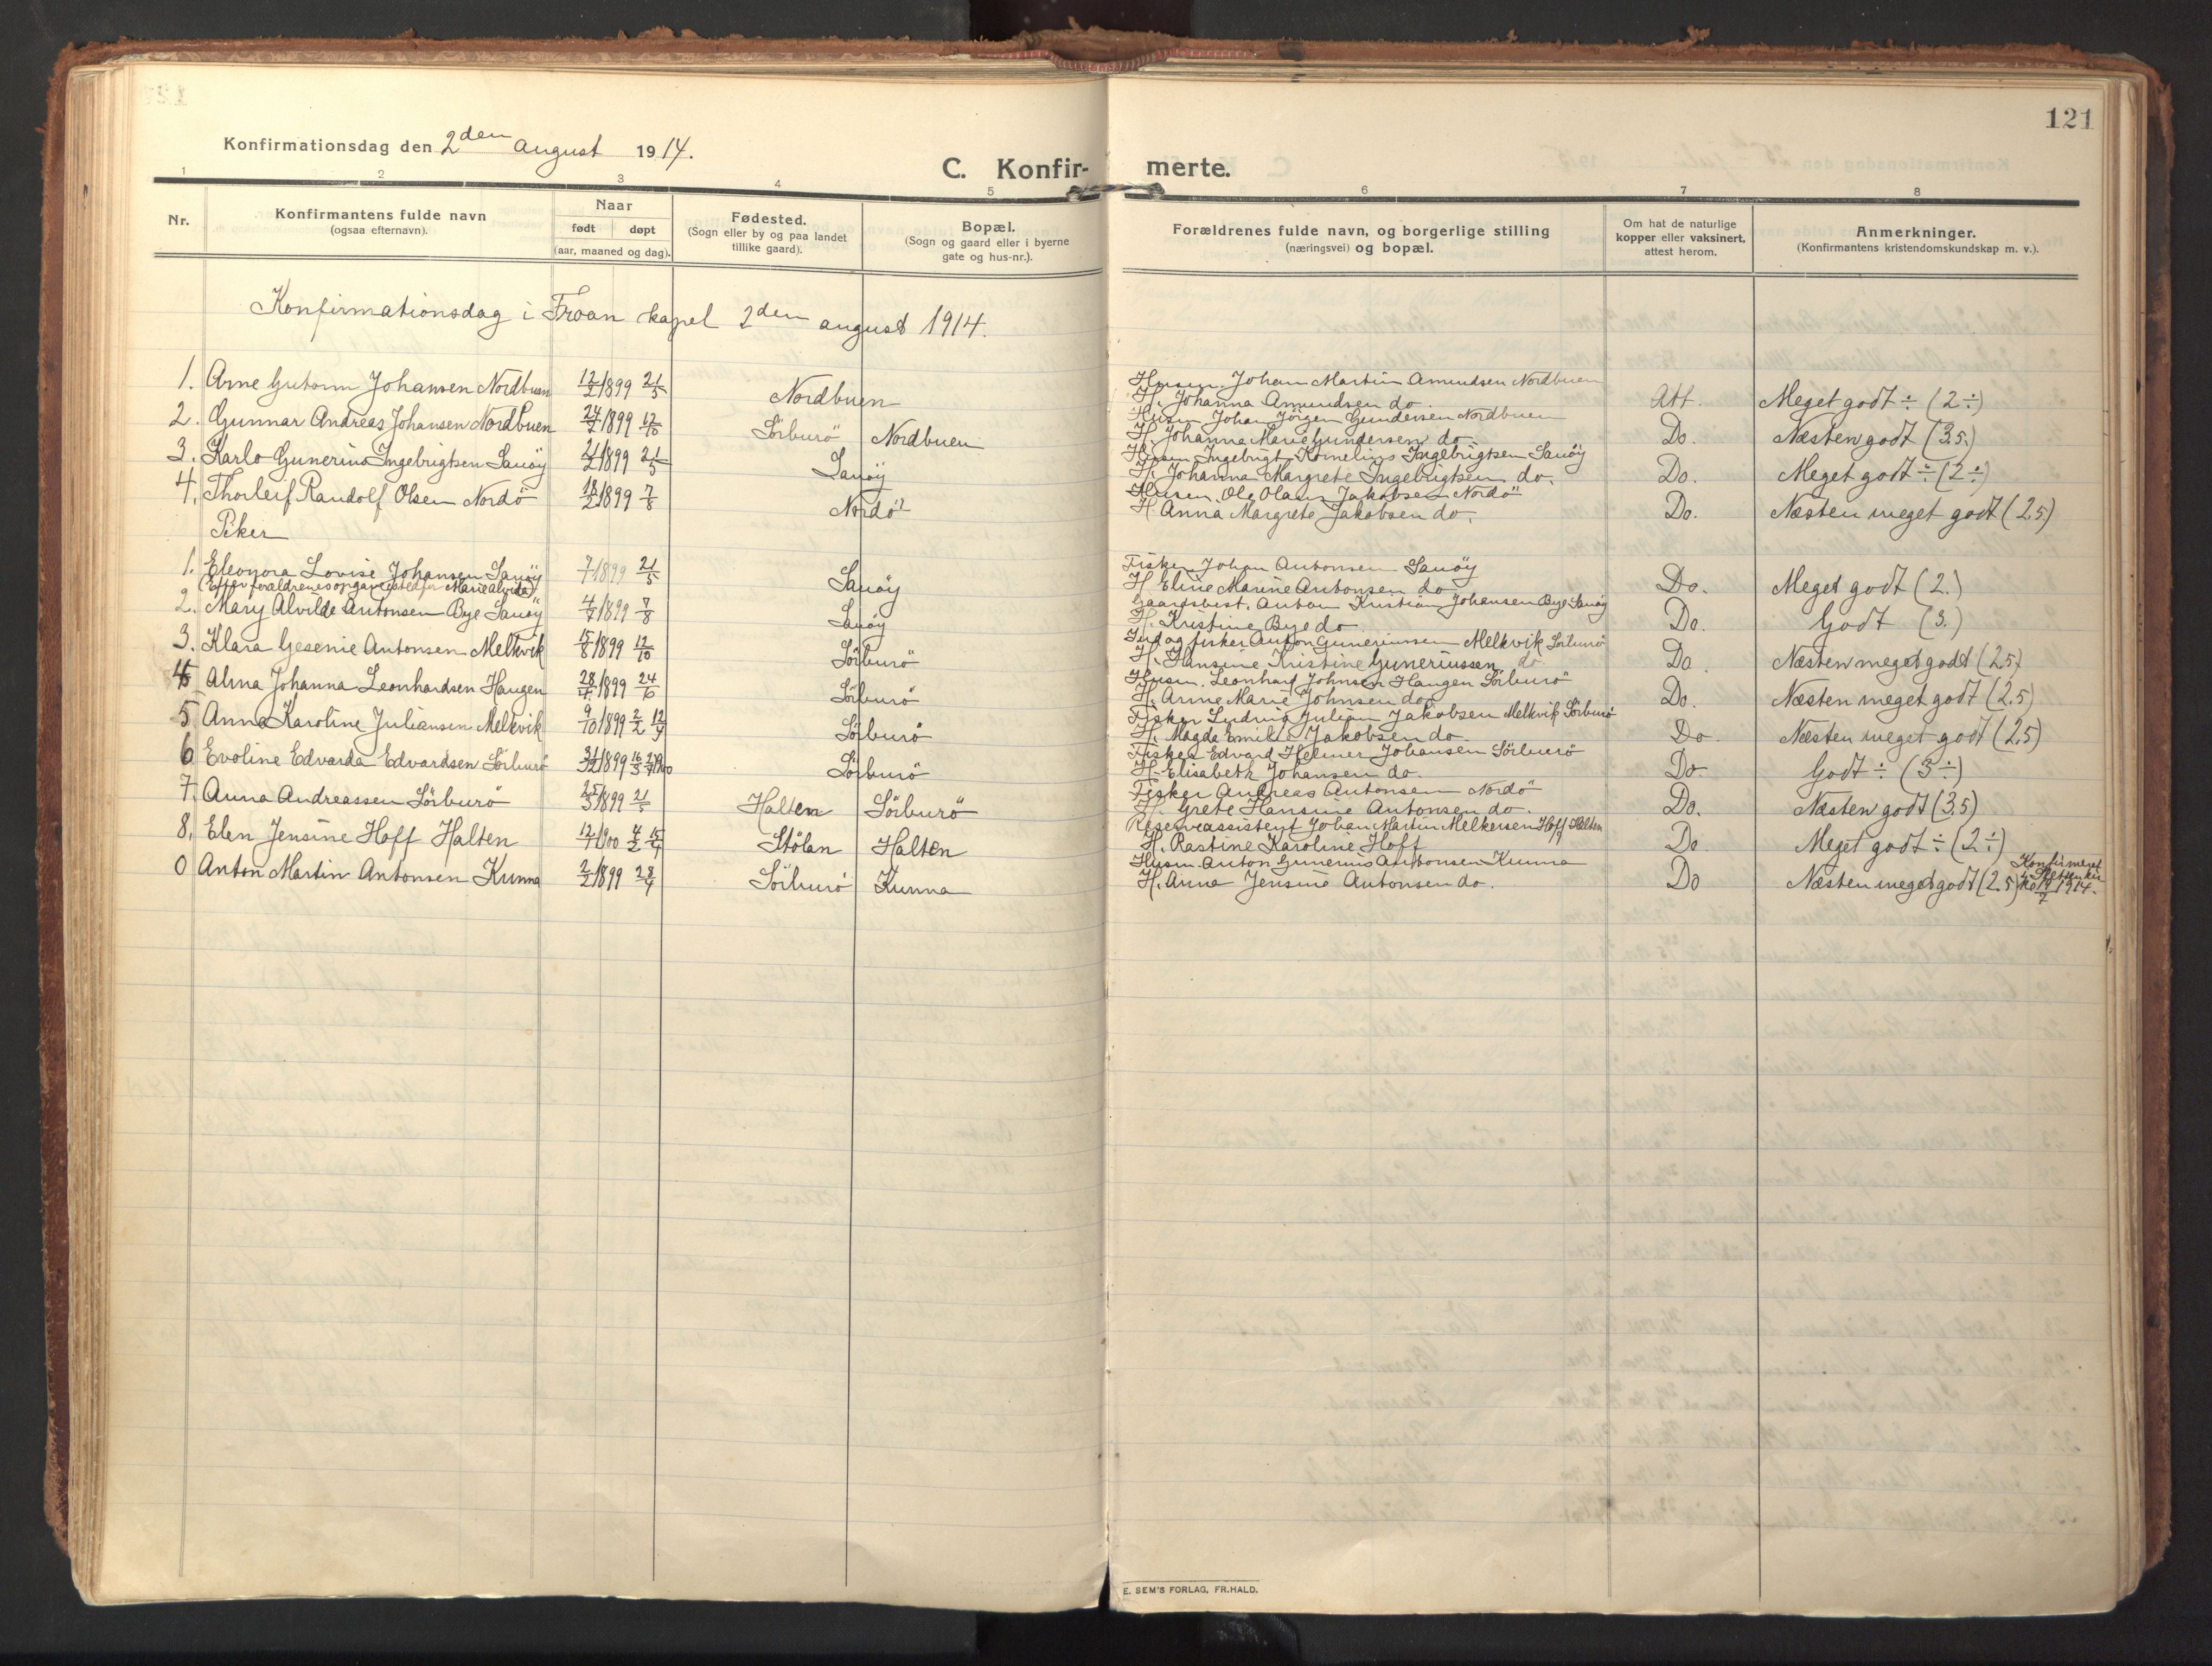 121
Konfirmationsdag den 2den august 1914.
C. Konfir- merte.
1 2 3 4 5 6 7 8
Nr.
Konfirmantens fulde navn
(ogsaa efternavn).
Naar
født døpt
(aar, maaned og dag).
Fødested.
(Sogn eller by og paa landet
tillike gaard).
Bopæl.
(Sogn og gaard eller i byerne
gate og hus-nr.).
Forældrenes fulde navn, og borgerlige stilling
(næringsvei) og bopæl.
Om hat de naturlige
kopper eller vaksinert,
attest herom.
Anmerkninger.
(Konfirmantens kristendomskundskap m. v.).
Konfirmationsdag i Froan kapel 2den august 1914.
1. Arne Gutorm Johansen Nordbuen 12/2 1899 21/5 Nordbuen Husm. Johan Martin Amundsen Nordbuen
H. Johanna Amundsen do. Att. Meget godt ÷ (2÷)
2. Gunnar Andreas Johansen Nordbuen 24/7 1899 12/10 Sörburö Nordbuen Husm. Johan Jörgen Gundersen Nordbuen
H. Johanna Marie Gundersen do. Do. Næsten godt (3.5.)
3. Karlo Gunerius Ingebrigtsen Sauöy 1899 21/5 Sauöy Husm. Ingebrigt Kornelius Ingebrigtsen Sauöy
H. Johanna Margrete Ingebrigtsen do. Do. Meget godt ÷ (2÷)
4. Thorleif Randolf Olsen Nordö 18/2 1899 7/8 Nordö Husm. Ole Olaus Jakobsen Nordö
H. Anna Margrete Jakobsen do. Do. Næsten meget godt (2.5)
Piker
1. Eleonora Lovise Johansen Sauöy 1899 21/5 Sauöy Fisker Johan Antonsen Sauöy
H. Eline Marine Antonsen do Do. Meget godt (2.)
(Efter forældrenes opgave istedfor Marie Alvida)
2. Mary Alvilde Antonsen Bye Sauöy 4/7 1899 7/8 Sauöy Gaardsbest. Anton Kristian Johansen Bye Sauöy
H. Kristine Bye do Do. Godt (3.)
3. Klara Gesenie Antonsen Melkvik 15/8 1899 12/10 Sörburö Ind. og fisker Anton Guneriussen Melkvik Sörburö
H. Hansine Kristine Guneriussen do Do Næsten meget godt (2.5)
4 Alma Johanna Leonhardsen Haugen 28/7 1899 24/10 Sörburö Husm. Leonhard Johnsen Haugen Sörburö
H. Anne Marie Johnsen do Do. Næsten meget godt (2.5)
5 Anna Karoline Juliansen Melkvik 9/10 1899 2/2 12/9 Sörburö Fisker Ludvig Julian Jakobsen Melkvik Sörburö
H. Magda Emilie Jakobsen do. Do Næsten meget godt (2.5)
6 Evoline Edvarda Edvardsen Sörburö 31/12 1899 Sörburö Fisker Edvard Helmer Johansen Sörburö
H. Elisabeth Johansen do. Do Godt ÷ (3÷)
7. Anna Andreassen Sörburö 1899 21/5 Halten Sörburö Fisker Andreas Antonsen Nordö
H. Grete Hansine Antonsen do. Do. Næsten godt (3.5)
8. Elen Jensine Hoff Halten 12/1 1900 Stölan Halten Reserveassistent Johan Martin Melkersen Hoff Halten
H. Rastine Karoline Hoff Do Meget godt ÷ (2÷)
0 Anton Martin Antonsen Kunna 2/2 1899 28/4 Sörburö Kunna Husm. Anton Gunerius Antonsen Kunna
H. Anna Jensine Antonsen do. Do Næsten meget godt (2.5) Konfirmeret
1914.
E. SEM'S FORLAG, FR.HALD.